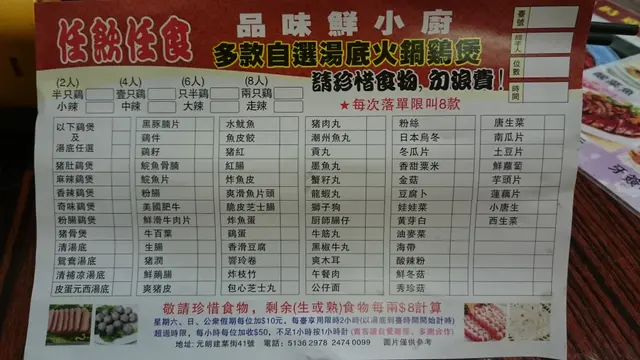 任飲任食
品味鮮小廚
多款自選湯底火鍋鷄煲
請珍惜食物,勿浪費!
★每次落單限叫8款
臺號
經手人
位數
時間
(2人) (4人) (6人) (8人)
半只鷄 壹只鷄 只半鷄 兩只鷄
小辣 中辣 大辣 走辣
以下鷄煲
及
湯底任選
猪肚鷄煲
麻辣鷄煲
香辣鷄煲
奇味鷄煲
粉腸鷄煲
猪骨煲
清湯底
鴛鴦湯底
清補凉湯底
皮蛋元西湯底
黑豚腩片
鷄件
鷄籽
鯇魚骨腩
鯇魚片
粉腸
美國肥牛
鮮滑牛肉片
牛百葉
生腸
猪潤
鮮鵝腸
爽猪皮
水魷魚
魚皮餃
猪紅
紅腸
炸魚皮
爽滑魚片頭
脆皮芝士腸
炸魚蛋
鷄蛋
香滑豆腐
響玲卷
炸枝竹
包心芝士丸
猪肉丸
潮州魚丸
貢丸
墨魚丸
蟹籽丸
龍蝦丸
獅子狗
厨師腸仔
牛筋丸
黑椒牛丸
爽木耳
午餐肉
公仔面
粉絲
日本烏冬
冬瓜片
香甜粟米
金菇
豆腐卜
娃娃菜
黄芽白
油麥菜
海帶
酸辣粉
鮮冬菇
秀珍菇
唐生菜
南瓜片
土豆片
鮮蘿蔔
芋頭片
蓮藕片
小唐生
西生菜
敬請珍惜食物,剩余(生或熟)食物每兩$8計算
星期六、日、公衆假期每位加$10元,每臺享用限時2小時(以湯底到臺時間開始計時)
超過時限,每小時每位加收$50,不足1小時按1小時計
地址:元朗建業街41號 電話:5136 2978 2474 0099 圖片僅供參考